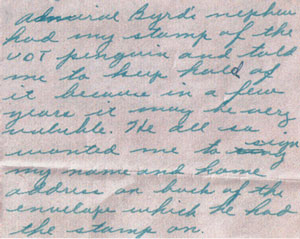 admiral Byrd's nephew
had my stamp of the
penguin and told
me to keep hold of
it because in a few
years it may be very
valuable. He all so
wanted me to sign
my name and home
address on back of the
envelope which he had
the stamp on.